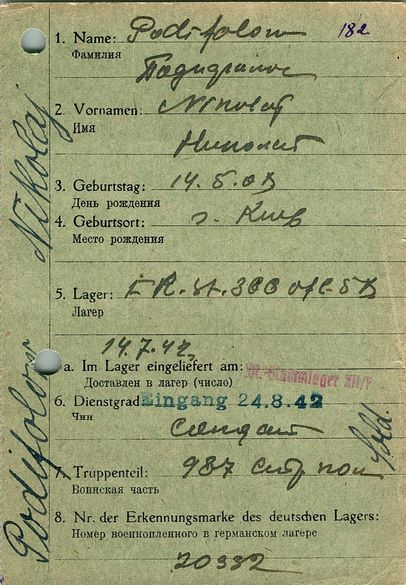 182
1. Name: Podifolow
Фамилия
2. Vornamen: Nikolaj
Имя
Николай
3. Geburtstag: 14.5.03
День рождения
4. Geburtsort: г. Киев
Место рождения
5. Lager:
Лагер
14.7.42
a. Im Lager eingeliefert am:
Доставлен в лагер (число)
6. Dienstgrad: Eingang 24.8.42
Чин
солдат
Sold.
7. Truppenteil: 987 стр пол
Воинская часть
8. Nr. der Erkennungsmarke des deutschen Lagers:
Номер военнопленного в германском лагере
20332
Podifolow Nikolaj